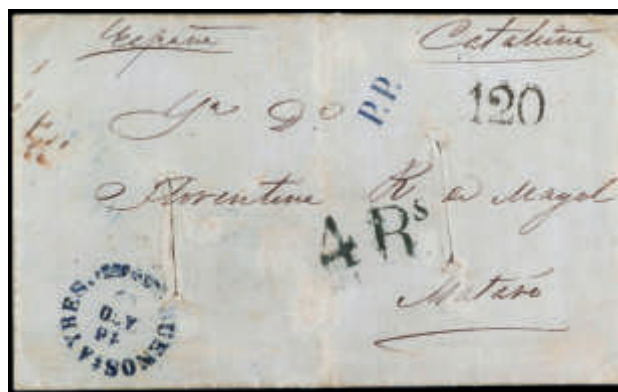 España
Cataluña
P.P.
120
Florentina R de Magol
4 Rs
Mataró
BUENOS AYRES